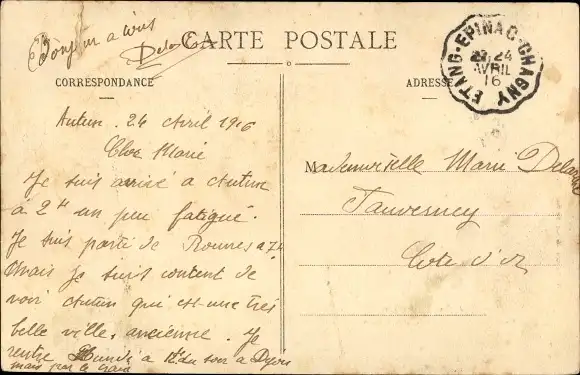 Bonjour a tous
CARTE POSTALE
CORRESPONDANCE
ADRESSE
ETANG-EPINAC-CHAGNY
24
AVRIL
16
Autun. 24 Avril 1916
Chère Marie
Je suis arrivé a Autun
à 2H un peu fatigué.
Je suis partie de Rouvres a 7H
Mais je suis content de
voir Autun qui est une très
belle ville, ancienne. Je
rentre Lundi a du soir a Dijon
mais par le train
Mademoiselle Marie
Tauverney
Cote d'or